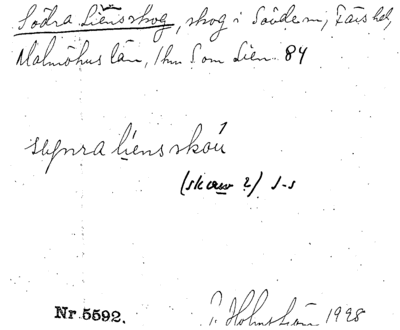 Södra Liensskog, skog i Sövdem, Färs hd,
Malmöhus län, 1 km S om Lien 84
seynra líens skóu
(skauw ?) s-s
Nr 5592. Holmström 1928